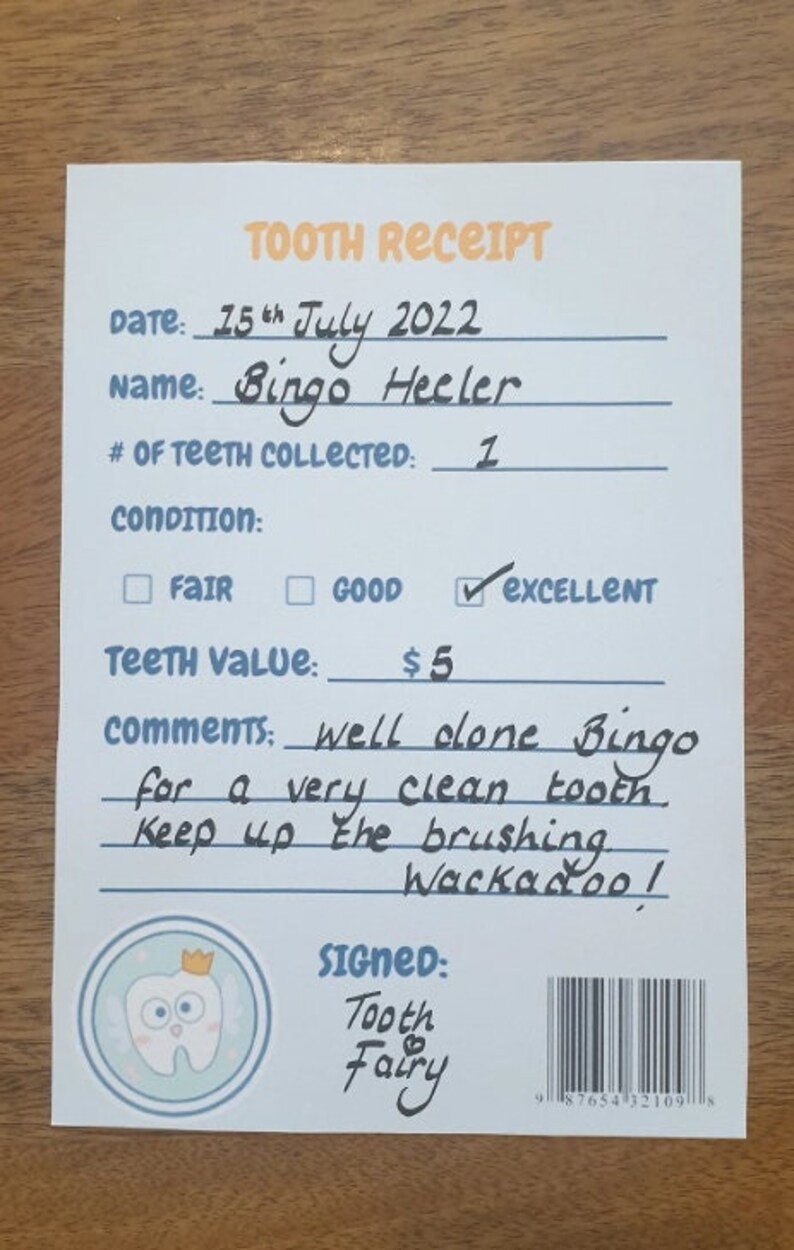 TOOTH RECEIPT
DATE: 15th July 2022
NAME: Bingo Heeler
# OF TEETH COLLECTED: 1
CONDITION:
FAIR GOOD EXCELLENT
TEETH VALUE: $5
COMMENTS: well done Bingo
for a very clean tooth.
Keep up the brushing
Wackadoo!
SIGNED:
Tooth
Fairy
9 87654 32109 8